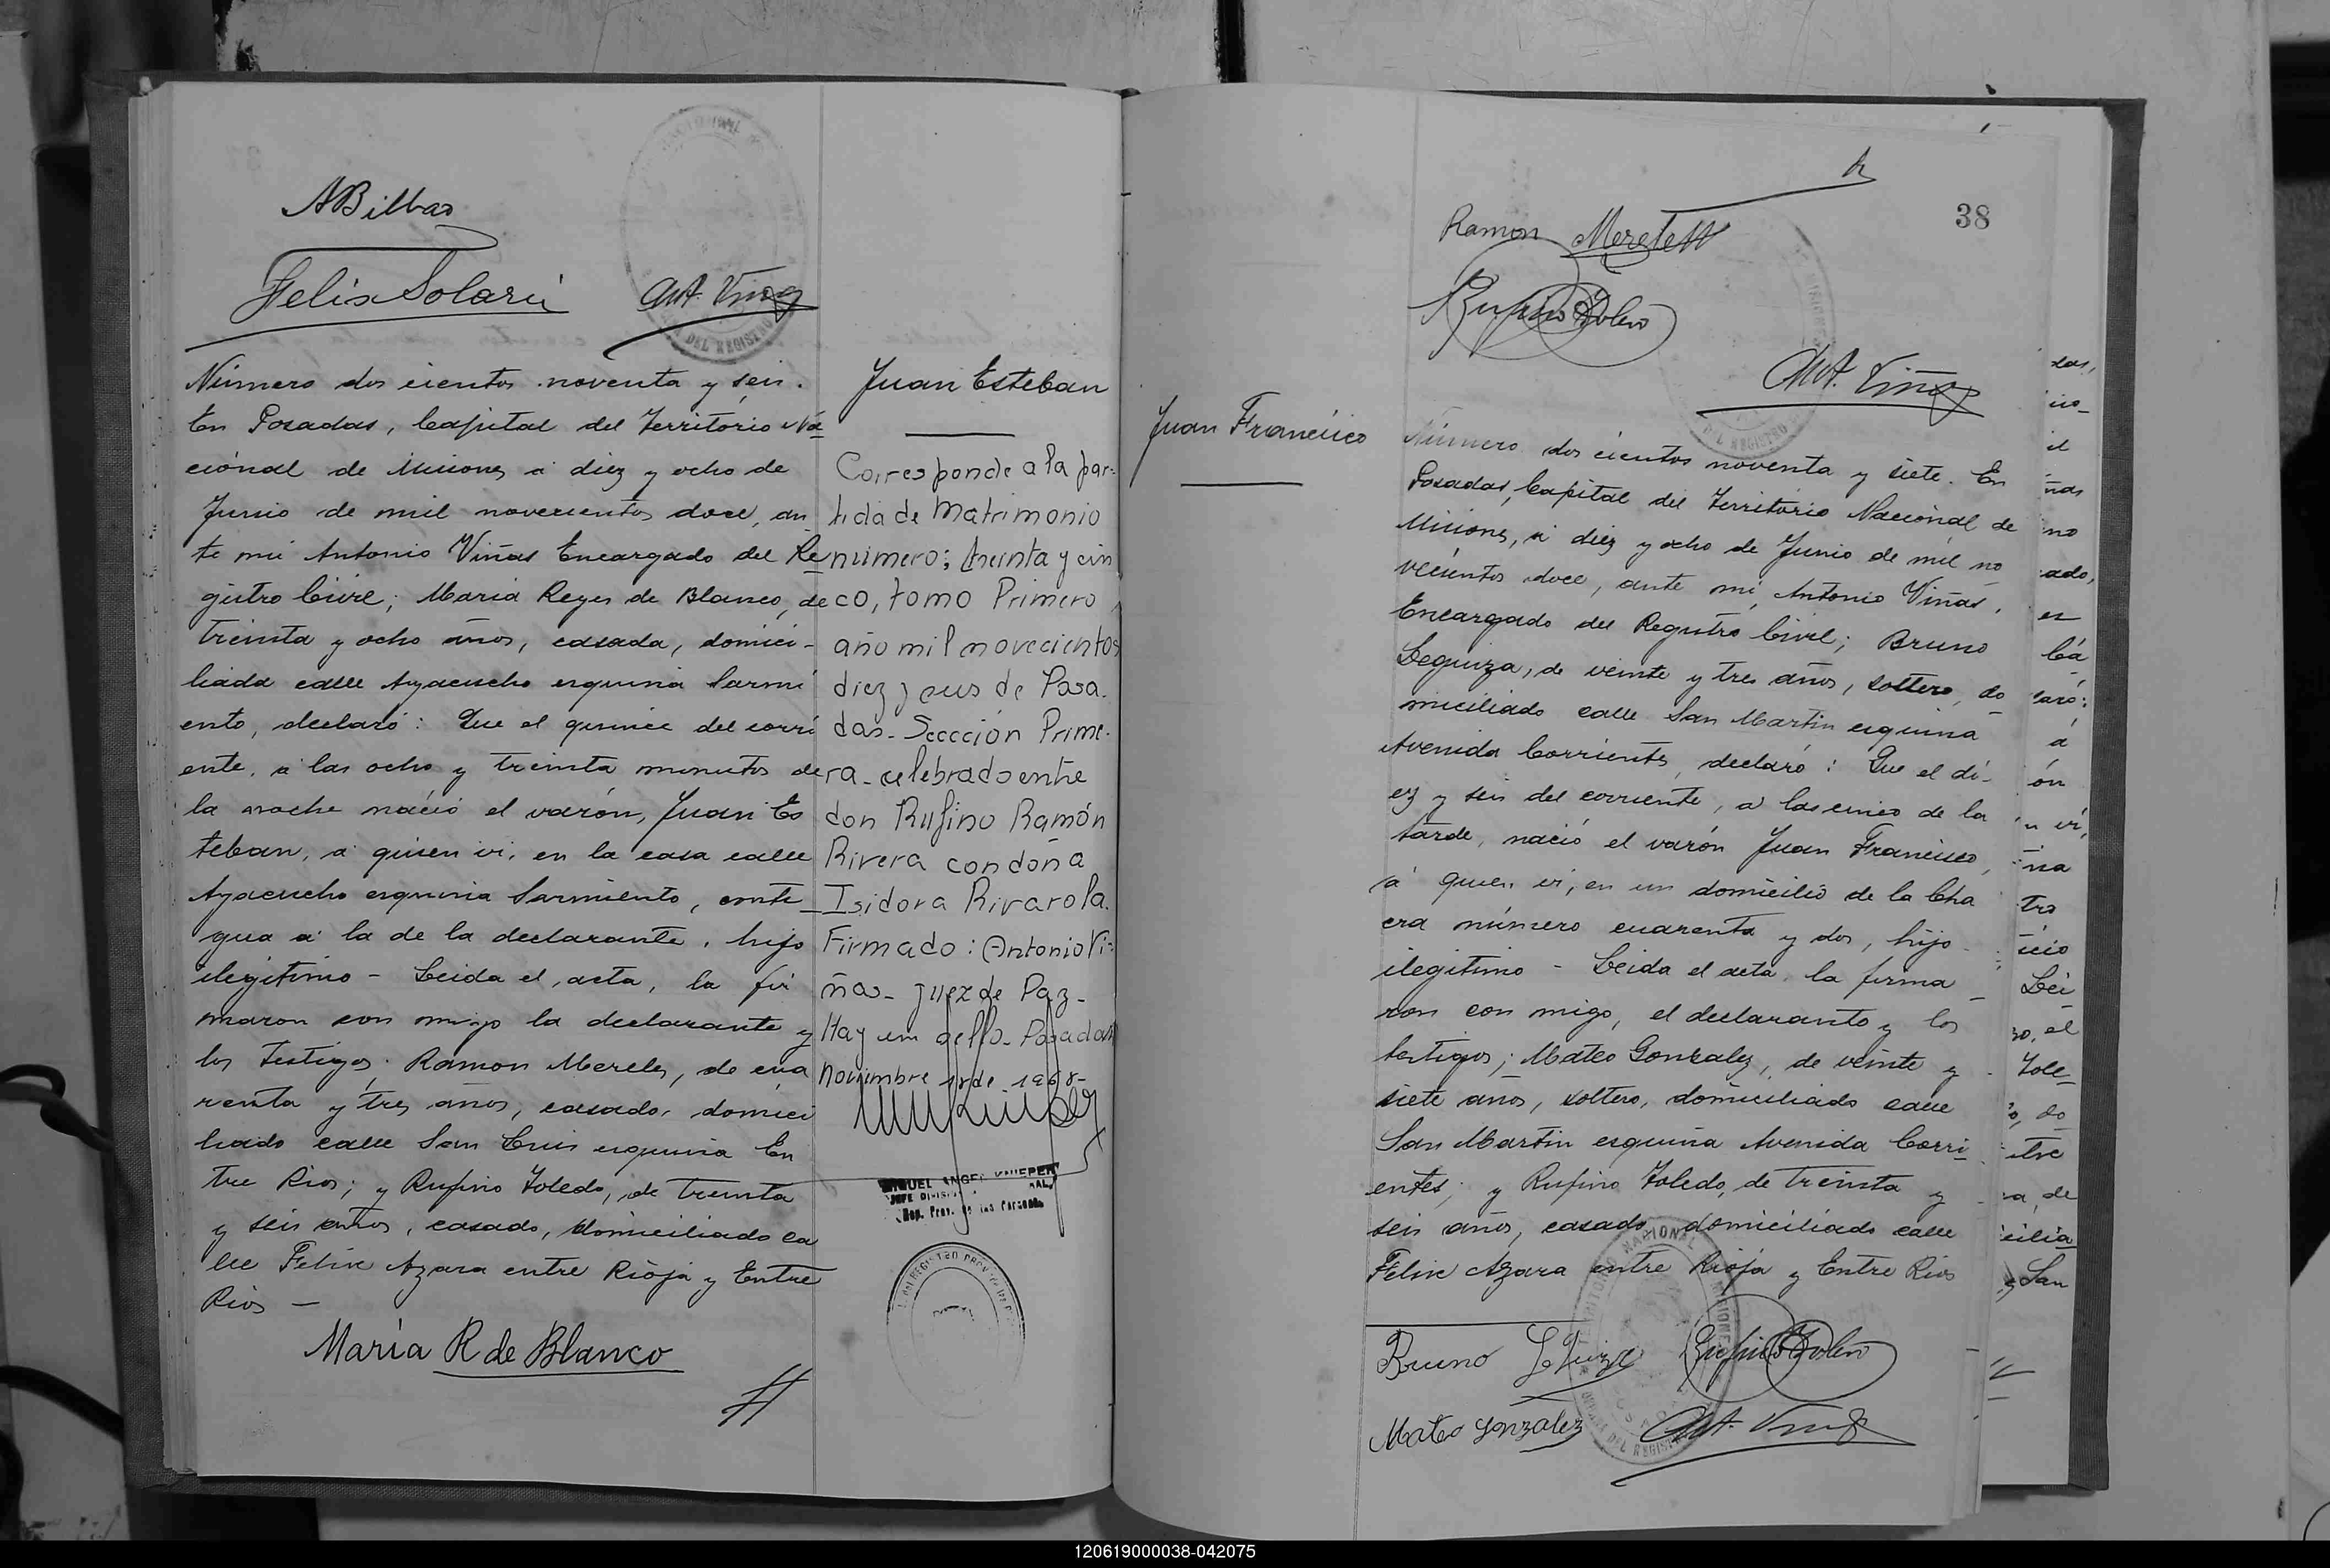 ABilbao
Felix Solari
Ant. Viñas
Número dos cientos noventa y seis.
En Posadas, Capital del Território Na
ciónal de Misiones á diez y ocho de
Junio de mil novecientos doce, an
te mi Antonio Viñas Encargado del Re
gistro Civil; Maria Reyes de Blanco, de
treinta y ocho años, casada, domici-
liada calle Ayacucho esquina Sarmi
ento, declaró: Que el quince del corri
ente, á las ocho y treinta minutos de
la noche nació el varón, Juan Es
teban, á quien vi, en la casa calle
Ayacucho esquina Sarmiento, conti-
gua á la de la declarante, hijo
ilegitimo - Leida el acta, la fir
maron con migo la declarante y
los testigos: Ramon Mereles, de cua
renta y tres años, casado, domici
liado calle San Luis esquina En
tre Rios; y Rufino Toledo, de treinta
y seis años, casado, domiciliado ca
lle Felix Azara entre Rioja y Entre
Rios —
María R de Blanco
Juan Esteban
Corresponde a la par-
tida de Matrimonio
número: treinta y cin
co, tomo Primero
año mil novecientos
diez y seis de Posa-
das- Seccción Prime-
ra- celebrado entre
don Rufino Ramón
Rivera con doña
Isidora Rivarola.
Firmado: Antonio Vi-
ñas- Juez de Paz-
Hay un sello- Posadas
Noviembre 18 de 1968-
MIGUEL ANGEL KNIEPER
JEFE
Rep. Prov. de las Personas
38
Ramon Mereles
Rufino Toledo
Ant. Viñas
Juan Francisco
Número dos cientos noventa y siete. En
Posadas, Capital del Território Nacional de
Misiones, á diez y ocho de Junio de mil no
vecientos doce, ante mi, Antonio Viñas,
Encargado del Registro Civil; Bruno
Leguiza, de veinte y tres años, soltero, do
miciliado calle San Martin esquina
Avenida Corrientes, declaró: Que el di-
ez y seis del corriente, a las cinco de la
tarde, nació el varón Juan Francisco,
á quien vi, en un domicilio de la Cha
cra número cuarenta y dos, hijo
ilegitimo - Leida el acta, la firma
ron con migo, el declarante y los
testigos; Mateo Gonzalez, de veinte y
siete años, soltero, domiciliado calle
San Martin esquina Avenida Corri-
entes; y Rufino Toledo, de treinta y
seis años, casado, domiciliado calle
Felix Azara entre Rioja y Entre Rios
Bruno Leguiza
Rufino Toledo
Mateo Gonzalez
Ant. Viñas
120619000038-042075